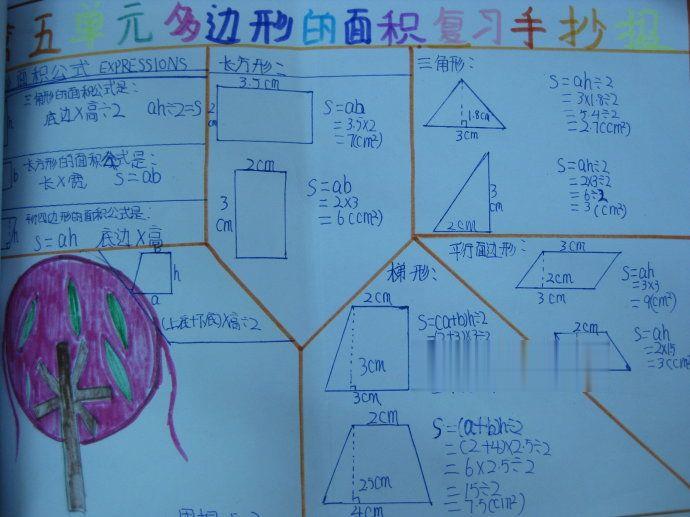 五单元多边形的面积复习手抄报
面积公式 EXPRESSIONS
三角形的面积公式是:
底边X高÷2 ah÷2=S
长方形的面积公式是:
长X宽 S=ab
b
行四边形的面积公式是:
S=ah 底边X高
h
a
h
a
(上底+下底)X高÷2
长方形:
3.5cm
2
cm
S=ab
=3.5x2
=7(cm²)
2cm
3
cm
S=ab
=2x3
=6(cm²)
三角形:
1.8cm
3cm
S=ah÷2
=3x1.8÷2
=5.4÷2
=2.7(cm²)
3
cm
2cm
S=ah÷2
=2x3÷2
=6÷2
=3(cm²)
梯形:
2cm
3cm
3cm
S=(a+b)h÷2
2cm
25cm
4cm
S=(a+b)h÷2
=(2+4)x2.5÷2
=6x2.5÷2
=15÷2
=7.5(cm²)
平行四边形:
3cm
2cm
3cm
S=ah
=3x3
=9(cm²)
2cm
S=ah
=2x15
=3(cm²)